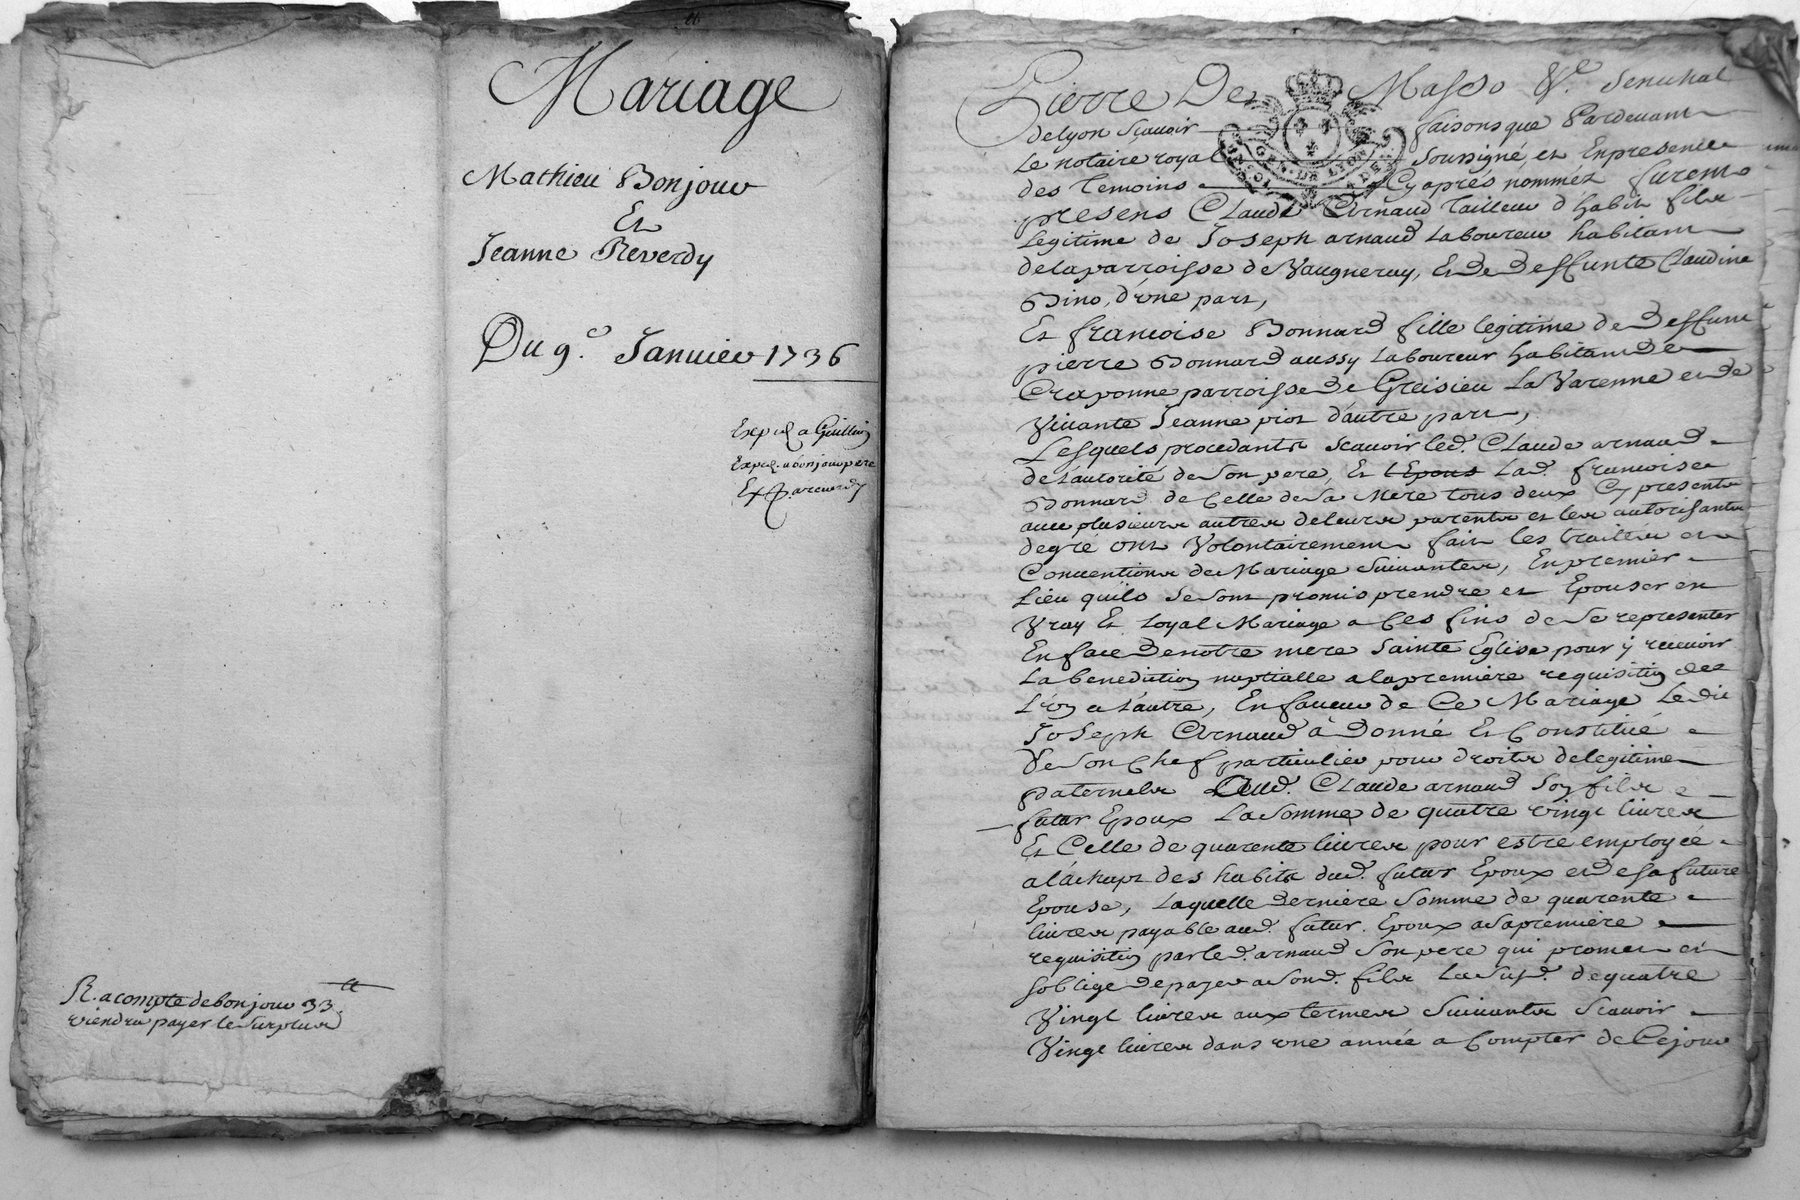 Mariage
Mathieu Bonjour
Et
Jeanne Reverdy
Du 9.e Janvier 1736
Exp.ed a Guillin
Exped. a bonjour pere
Exp. a reverdy
R. a compte de bonjour 33.tt
viendra payer le surplus
Pierre De Masso Sr. Senechal
de Lyon Scavoir faisons que Pardevant
Le notaire royal Soussigné et En presence
des Temoins Cy aprés nommez furent
presens Claude Arnaud Tailleur d'habit fils
Legitime de Joseph arnaud Laboureur habitant
de la parroisse de Vaugneray, Et de deffunte Claudine
Bino, d'vne part,
Et francoise Bonnard fille legitime de deffunt
pierre Bonnard aussy Laboureur habitant de
Craponne parroisse de Gresieu La Varenne et de
Vivante Jeanne piot d'autre part,
Lesquels procedants scavoir led. Claude arnaud
de L'autorité de Son pere, Et L'Epous Lad. francoise
Bonnard de Celle de Sa Mere tous deux Cy presents
avec plusieurs autres de leurs parents et les autorisants
de gré ont Volontairement fait les traités et
Conventions de Mariage Suivantes, En premier
Lieu quils Se Sont promis prendre et Epouser en
Vray Et Loyal Mariage a Ces fins de Se representer
En face de notre mere Sainte Eglise pour y recevoir
La benediction nuptialle a la premiere requisition de
L'vn a L'autre, En faveur de Ce Mariage Le dit
Joseph Arnaud à donné Et Constitué
De Son Chef particulier pour droits de legitime
paternels Aud. Claude arnaud Son fils
futur Epoux La Somme de quatre vingt livres
Et Celle de quarente livres pour estre employée
a l'achapt des habits dud. futur Epoux et de sa future
Epouse, Laquelle derniere Somme de quarente
livres payable aud. futur Epoux a sa premiere
requisition par led. arnaud Son pere qui promet et
s'oblige de payer a Sond. fils La Susd. de quatre
Vingt livres aux termes Suivants Scavoir
Vingt livres dans vne année a Compter de Cejour